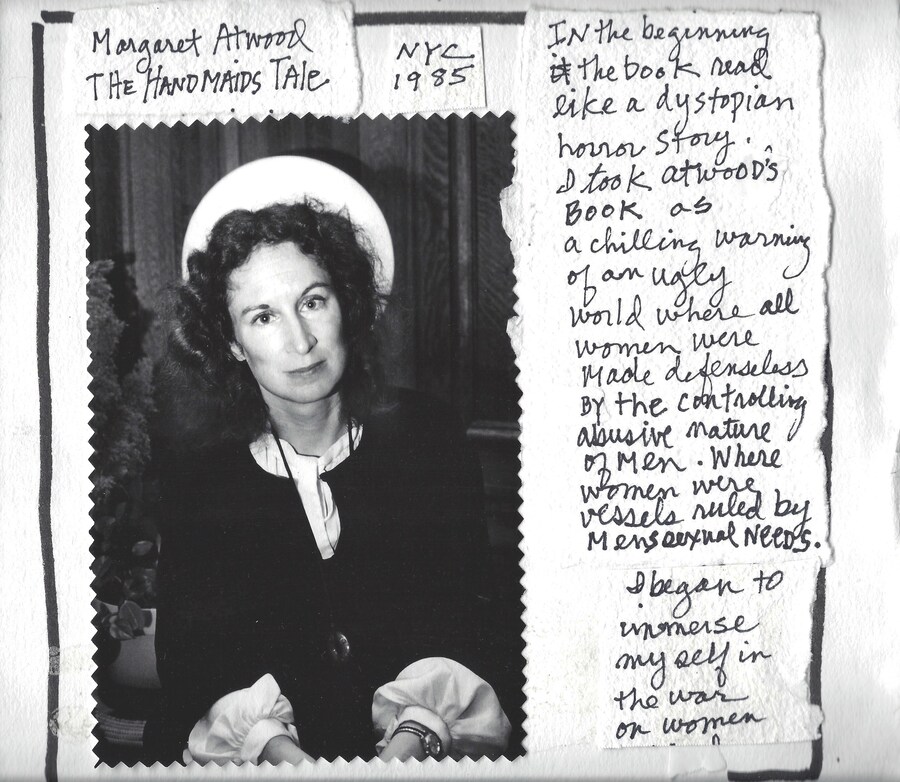 Margaret Atwood
THE HANDMAIDS TALE
NYC
1985
IN the beginning
the book read
like a dystopian
horror story.
I took atwood's
BOOK as
a chilling warning
of an ugly
world where all
women were
Made defenseless
BY the controlling
abusive nature
of Men. Where
women were
vessels ruled by
Mens sexual NEEDS.
I began to
immerse
my self in
the war
on women